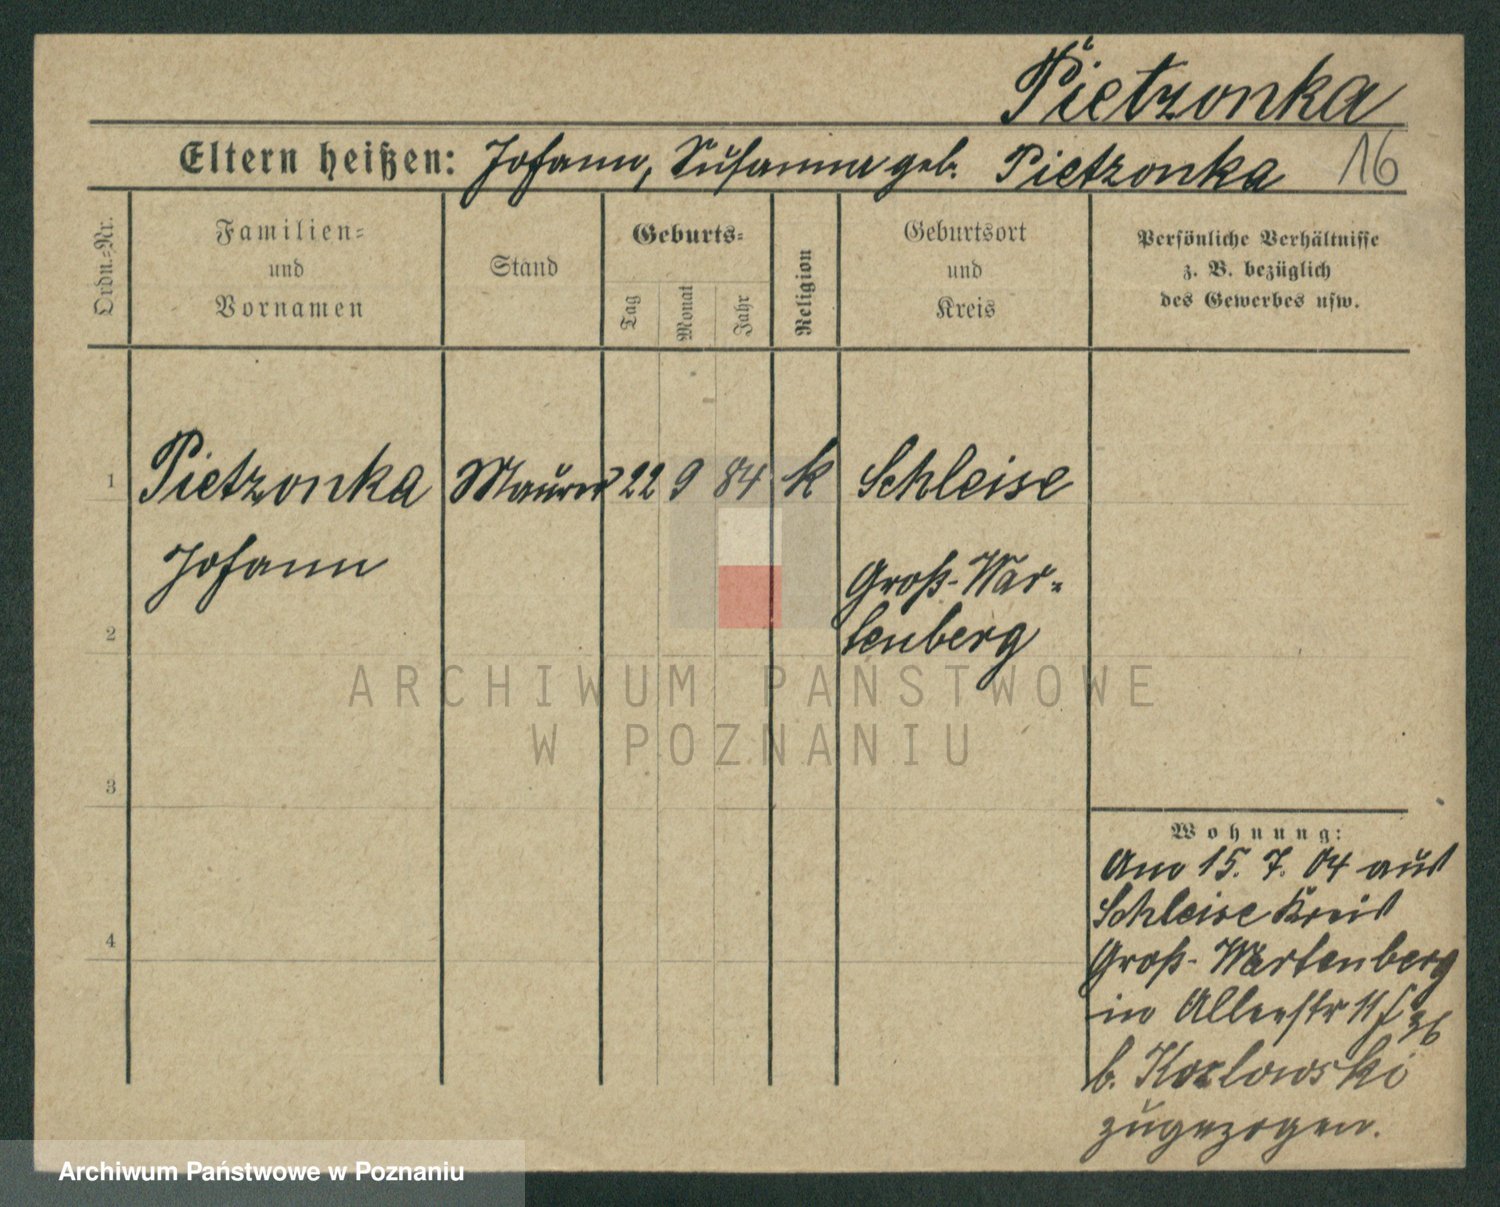 Pietzonka
Eltern heißen: Johann, Susanna geb. Pietzonka 16
Ordn.-Nr.
Familien-
und
Vornamen
Stand
Geburts-
Tag
Monat
Jahr
Religion
Geburtsort
und
Kreis
Persönliche Verhältnisse
z. B. bezüglich
des Gewerbes usw.
1 Pietzonka Maurer 22 9 84 k Schleise
Johann
Groß-War-
tenberg
2
ARCHIWUM PAŃSTWOWE
W POZNANIU
3
Wohnung:
Am 15. 7. 04 aus
Schleise Kreis
4
Groß-Wartenberg
in Alleestr 11
b. Kozlowski
zugezogen.
Archiwum Państwowe w Poznaniu